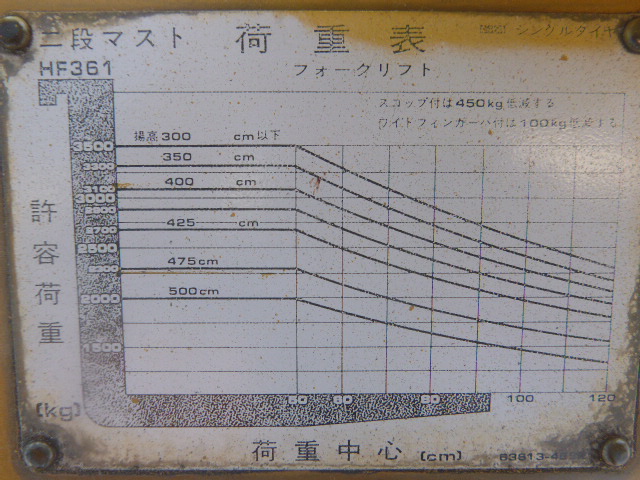 二段マスト 荷重表 シングルタイヤ
HF361 フォークリフト
スコップ付は450kg低減する
ワイトフィンガーバ付は100kg低減する
3500 揚高300 cm以下
350 cm
3100 400 cm
3000
2700 425 cm
2500
475cm
2000 500cm
1500
許容荷重
(kg)
50 60 80 100 120
荷重中心 (cm)